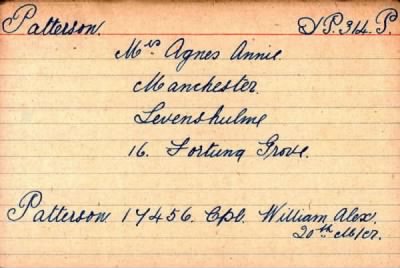 Patterson. D.P. 314. P.
Mrs Agnes Annie.
Manchester.
Levenshulme
16. Fortuna Grove.
Patterson. 17456. Cpl. William Alex.
20th M/cr.